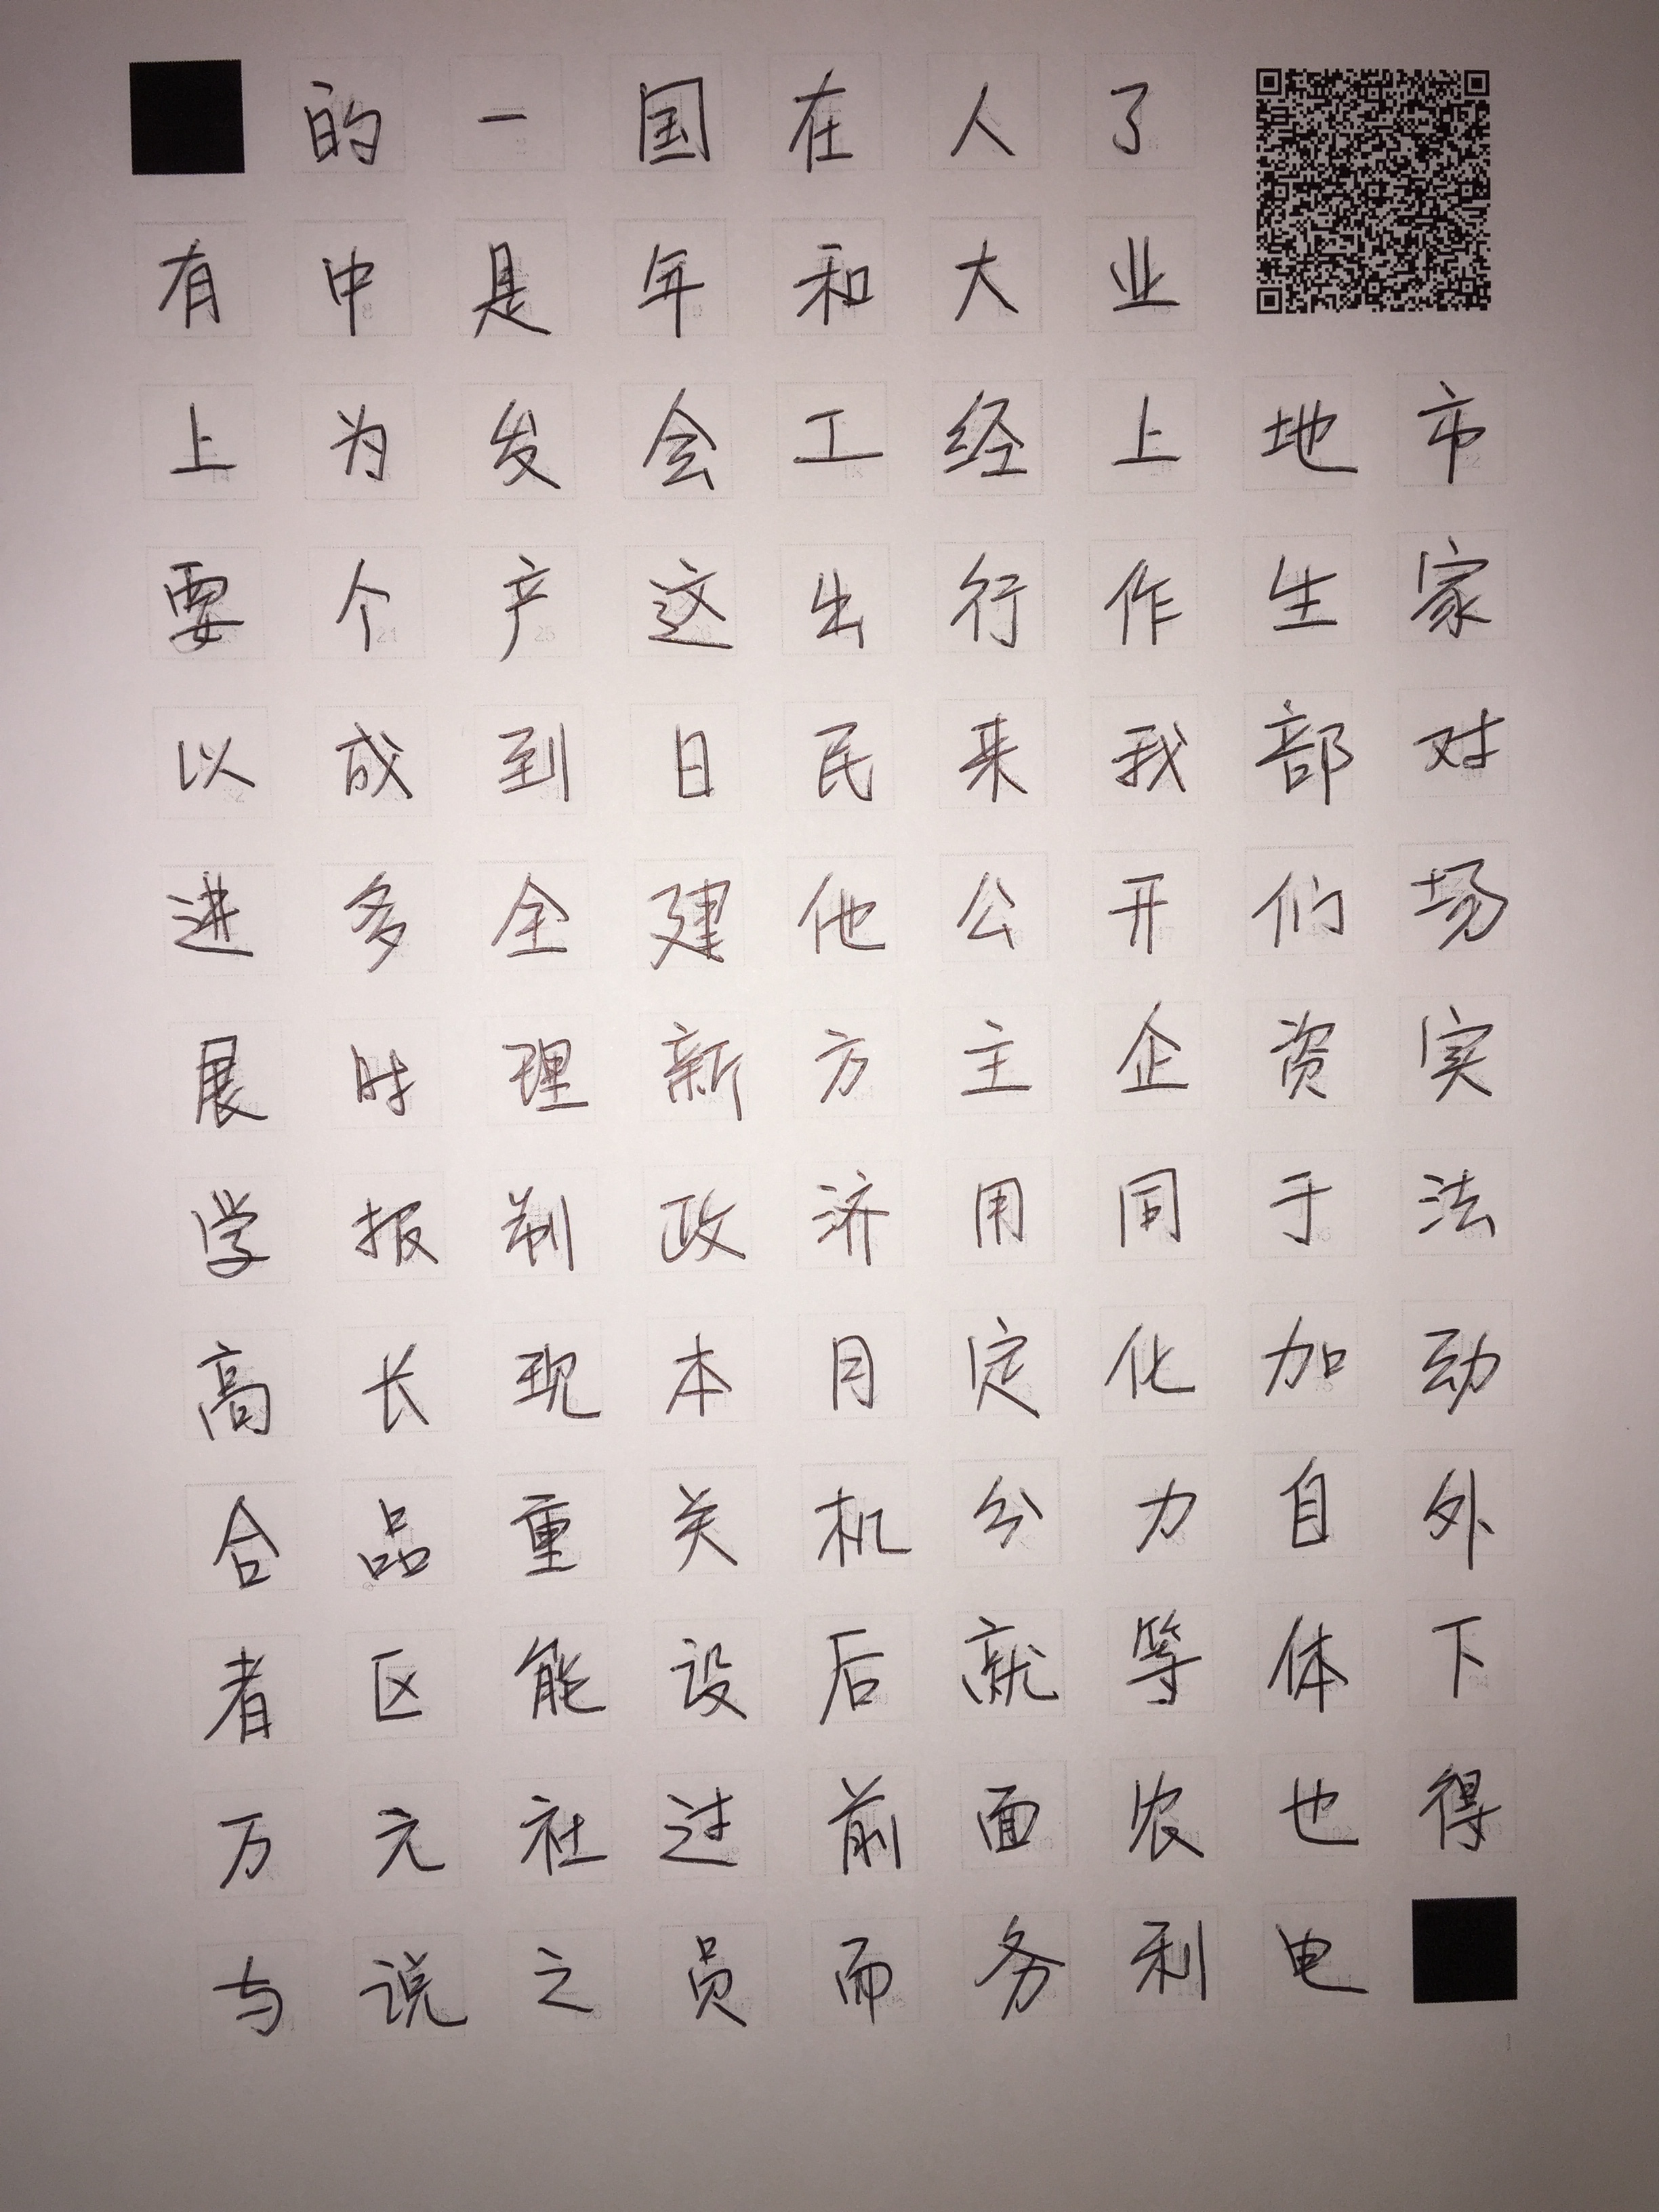 的一国在人了
有中是年和大业
上为发会工经上地市
要个产这出行作生家
以成到日民来我部对
进多全建他公开们场
展时理新方主企资实
学报制政济用同于法
高长现本月定化加动
合品重关机分力自外
者区能设后就等体下
万元社过前面农也得
与说之员而务利电